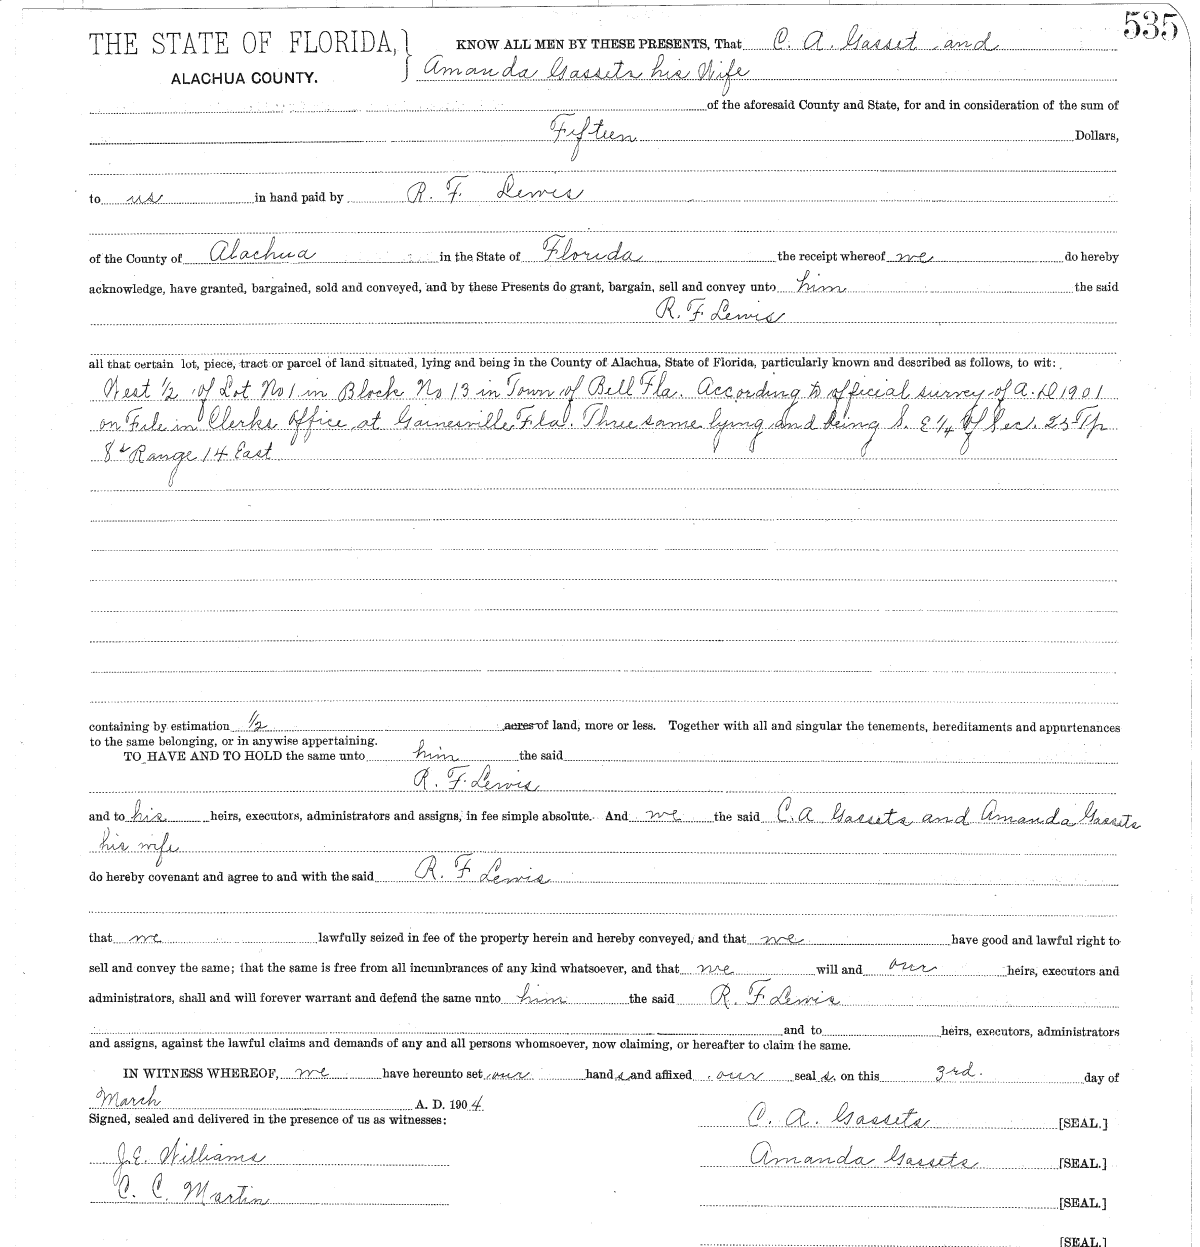 535
THE STATE OF FLORIDA,} KNOW ALL MEN BY THESE PRESENTS, That C. A. Gasset and
ALACHUA COUNTY. Amanda Gassets his Wife
of the aforesaid County and State, for and in consideration of the sum of
Fifteen Dollars,
to us in hand paid by R. F. Lewis
of the County of Alachua in the State of Florida the receipt whereof we do hereby
acknowledge, have granted, bargained, sold and conveyed, and by these Presents do grant, bargain, sell and convey unto him the said
R. F. Lewis
all that certain lot, piece, tract or parcel of land situated, lying and being in the County of Alachua, State of Florida, particularly known and described as follows, to wit:
West 1/2 of Lot No 1 in Block No 13 in Town of Bell Fla. According to official survey of A.D 1901
on File in Clerks Office at Gainesville Fla. Three same lying and being S. E 1/4 of Sec. 25 Tp
8 Range 14 East
containing by estimation 1/2 acres of land, more or less. Together with all and singular the tenements, hereditaments and appurtenances
to the same belonging, or in anywise appertaining.
TO HAVE AND TO HOLD the same unto him the said
R. F. Lewis
and to his heirs, executors, administrators and assigns, in fee simple absolute. And we the said C. A Gassets and Amanda Gassets
his wife
do hereby covenant and agree to and with the said R. F Lewis
that we lawfully seized in fee of the property herein and hereby conveyed, and that we have good and lawful right to
sell and convey the same; that the same is free from all incumbrances of any kind whatsoever, and that we will and our heirs, executors and
administrators, shall and will forever warrant and defend the same unto him the said R. F Lewis
and to heirs, executors, administrators
and assigns, against the lawful claims and demands of any and all persons whomsoever, now claiming, or hereafter to claim the same.
IN WITNESS WHEREOF, we have hereunto set our hands and affixed our seal s. on this 3rd. day of
March A. D. 1904
Signed, sealed and delivered in the presence of us as witnesses: C. A. Gassets [SEAL.]
J.E. Williams Amanda Gassets [SEAL.]
C. C. Martin [SEAL.]
[SEAL.]